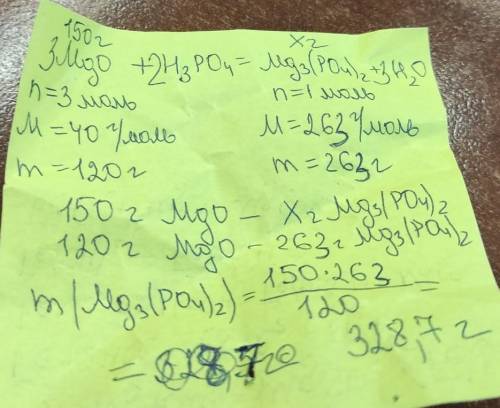 150г хг
3MgO + 2H₃PO₄ = Mg₃(PO₄)₂ + 3H₂O
n=3 моль n=1 моль
M=40 г/моль M=263 г/моль
m=120 г m=263 г
150 г MgO – хг Mg₃(PO₄)₂
120 г MgO – 263 г Mg₃(PO₄)₂
m(Mg₃(PO₄)₂) = 150·263 / 120 =
= 328,7 г